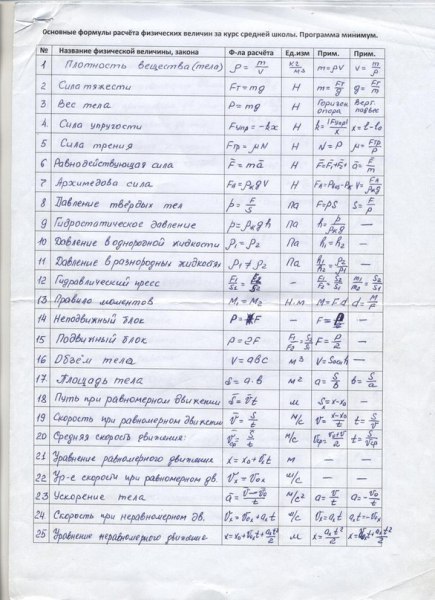 Основные формулы расчёта физических величин за курс средней школы. Программа минимум.
№ Название физической величины, закона Ф-ла расчёта Ед.изм Прим. Прим.
1 Плотность вещества (тела) ρ = m/v кг/м³ m = ρv v = m/ρ
2 Сила тяжести Fт = mg Н m = Fт/g g = Fт/m
3 Вес тела P = mg Н Горизон. опора Верт. подвес
4 Сила упругости Fупр = -kx Н k = |Fупр|/x x = l - l₀
5 Сила трения Fтр = μN Н N = P μ = Fтр/P
6 Равнодействующая сила F̄ = mā Н F̄ = F̄₁ + F̄₂ ā = F̄/m
7 Архимедова сила Fа = ρжgV Н Fа = Pвоз - Pж V = Fа/ρжg
8 Давление твёрдых тел p = F/S Па F = pS S = F/p
9 Гидростатическое давление p = ρжgh Па h = p/ρжg —
10 Давление в однородной жидкости p₁ = p₂ Па h₁ = h₂ —
11 Давление в разнородных жидкостя p₁ ≠ p₂ Па h₁/h₂ = ρ₂/ρ₁ —
12 Гидравлический пресс
13 Правило моментов M₁ = M₂ Н·м M = F·d d = M/F
14 Неподвижный блок P = F — —
15 Подвижный блок P = 2F F = P/2 —
16 Объём тела V = abc м³ —
17 Площадь тела S = a·b м² a = S/b b = S/a
18 Путь при равномерном движении м S = x - x₀ —
19 Скорость при равномерном движении v̄ = S/t м/с v̄ = x-x₀/t t = S/v
20 Средняя скорость движения: v̄ср = S/t м/с vср = v₀+v/2 t = S/vср
21 Уравнение равномерного движения x = x₀ + vₓt м — —
22 Ур-е скорости при равномерном дв. vₓ = v₀ₓ м/с — —
23 Ускорение тела ā = v̄-v̄₀/t м/с² a = v/t a = -v₀/t
24 Скорость при неравномерном дв. vₓ = v₀ₓ + aₓt м/с vₓ = aₓt aₓt = -v₀ₓ
25 Уравнение неравномерного движения x = x₀ + v₀t + aₓt²/2 м x = aₓt²/2